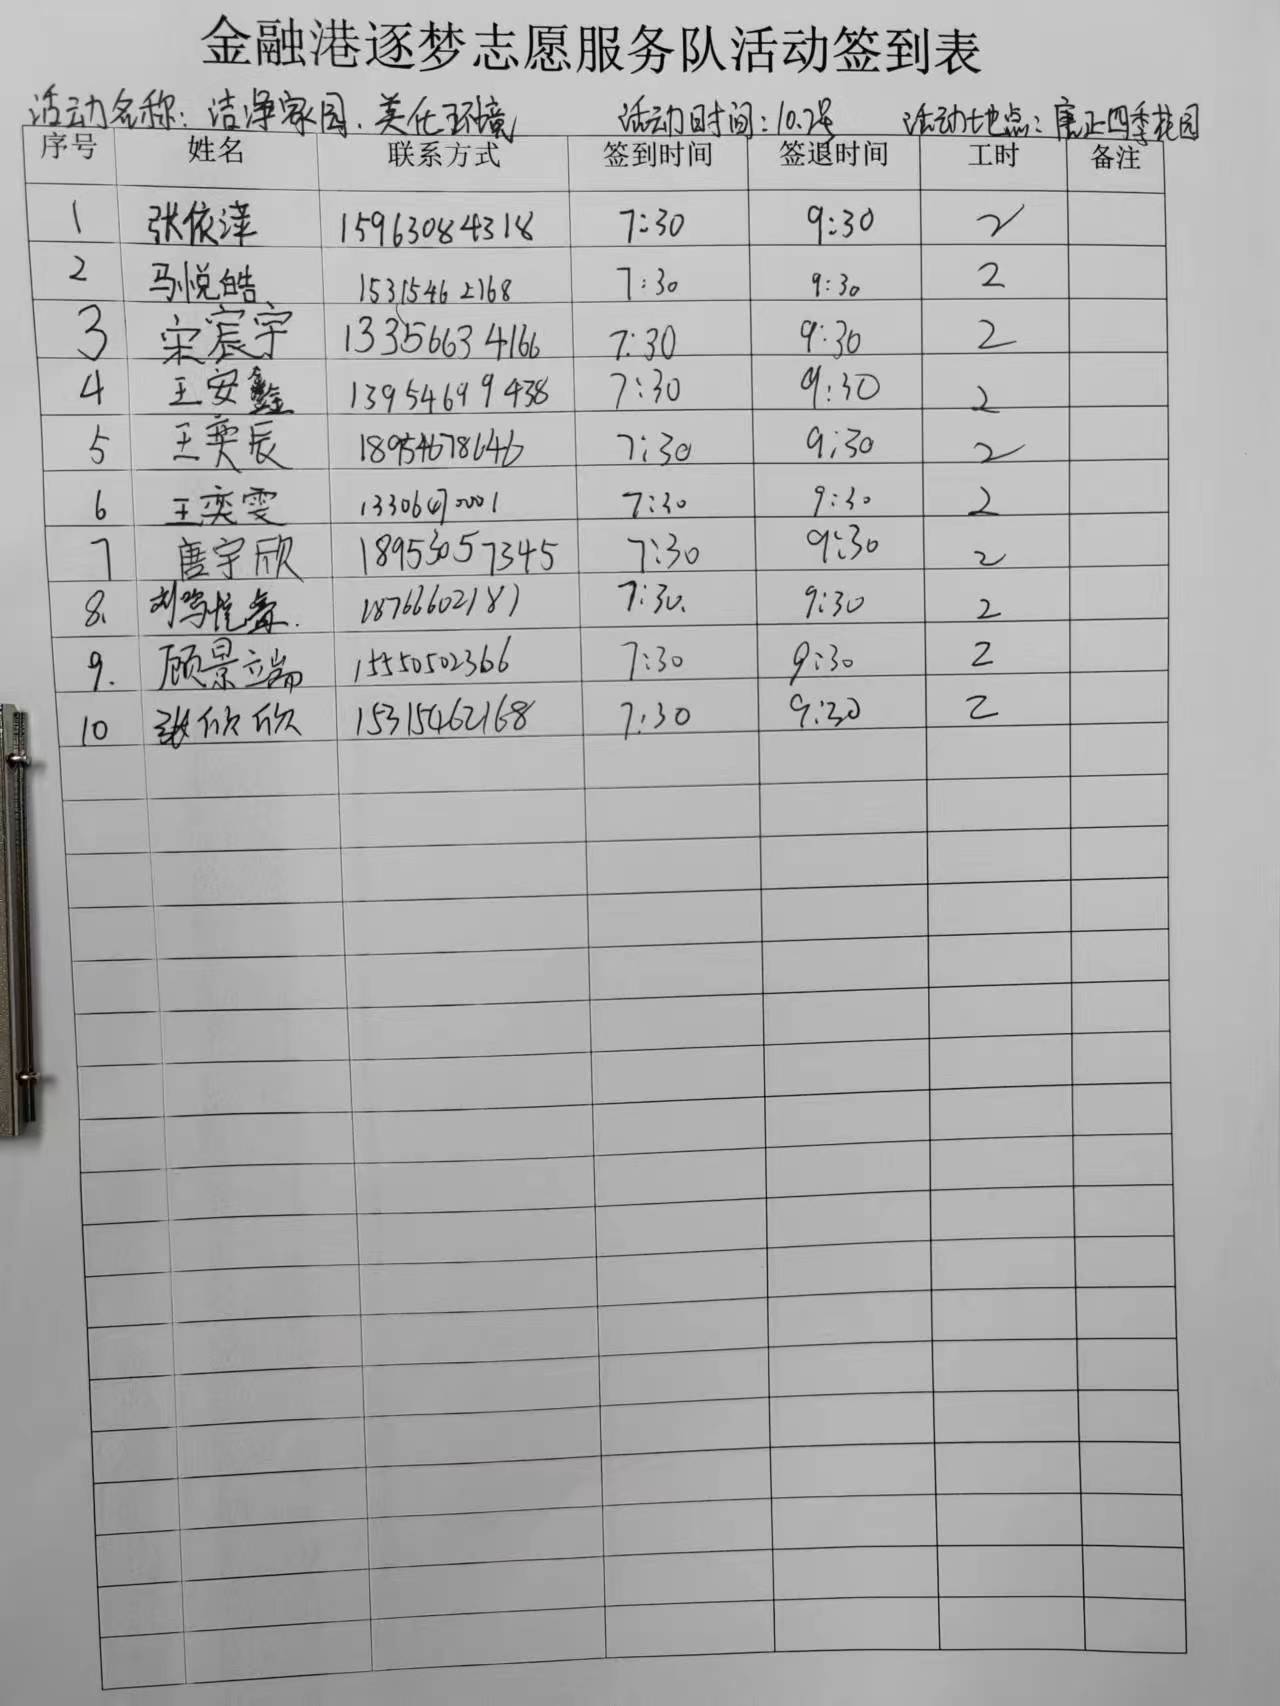 金融港逐梦志愿服务队活动签到表
活动名称：洁净家园.美化环境 活动日时间：10.2号 活动地点：唐正四季花园
序号 姓名 联系方式 签到时间 签退时间 工时 备注
1 张依泽 15963084318 7:30 9:30 2
2 马悦皓 15315462168 7:30 9:30 2
3 宋宸宇 13356634166 7:30 9:30 2
4 王安鑫 13954699438 7:30 9:30 2
5 王奕辰 18954678646 7:30 9:30 2
6 王奕雯 7:30 9:30 2
7 唐宇欣 18953057345 7:30 9:30 2
8. 刘 18766602181 7:30. 9:30 2
9. 顾景端 15550502366 7:30 9:30 2
10 张欣欣 15315462168 7:30 9:30 2